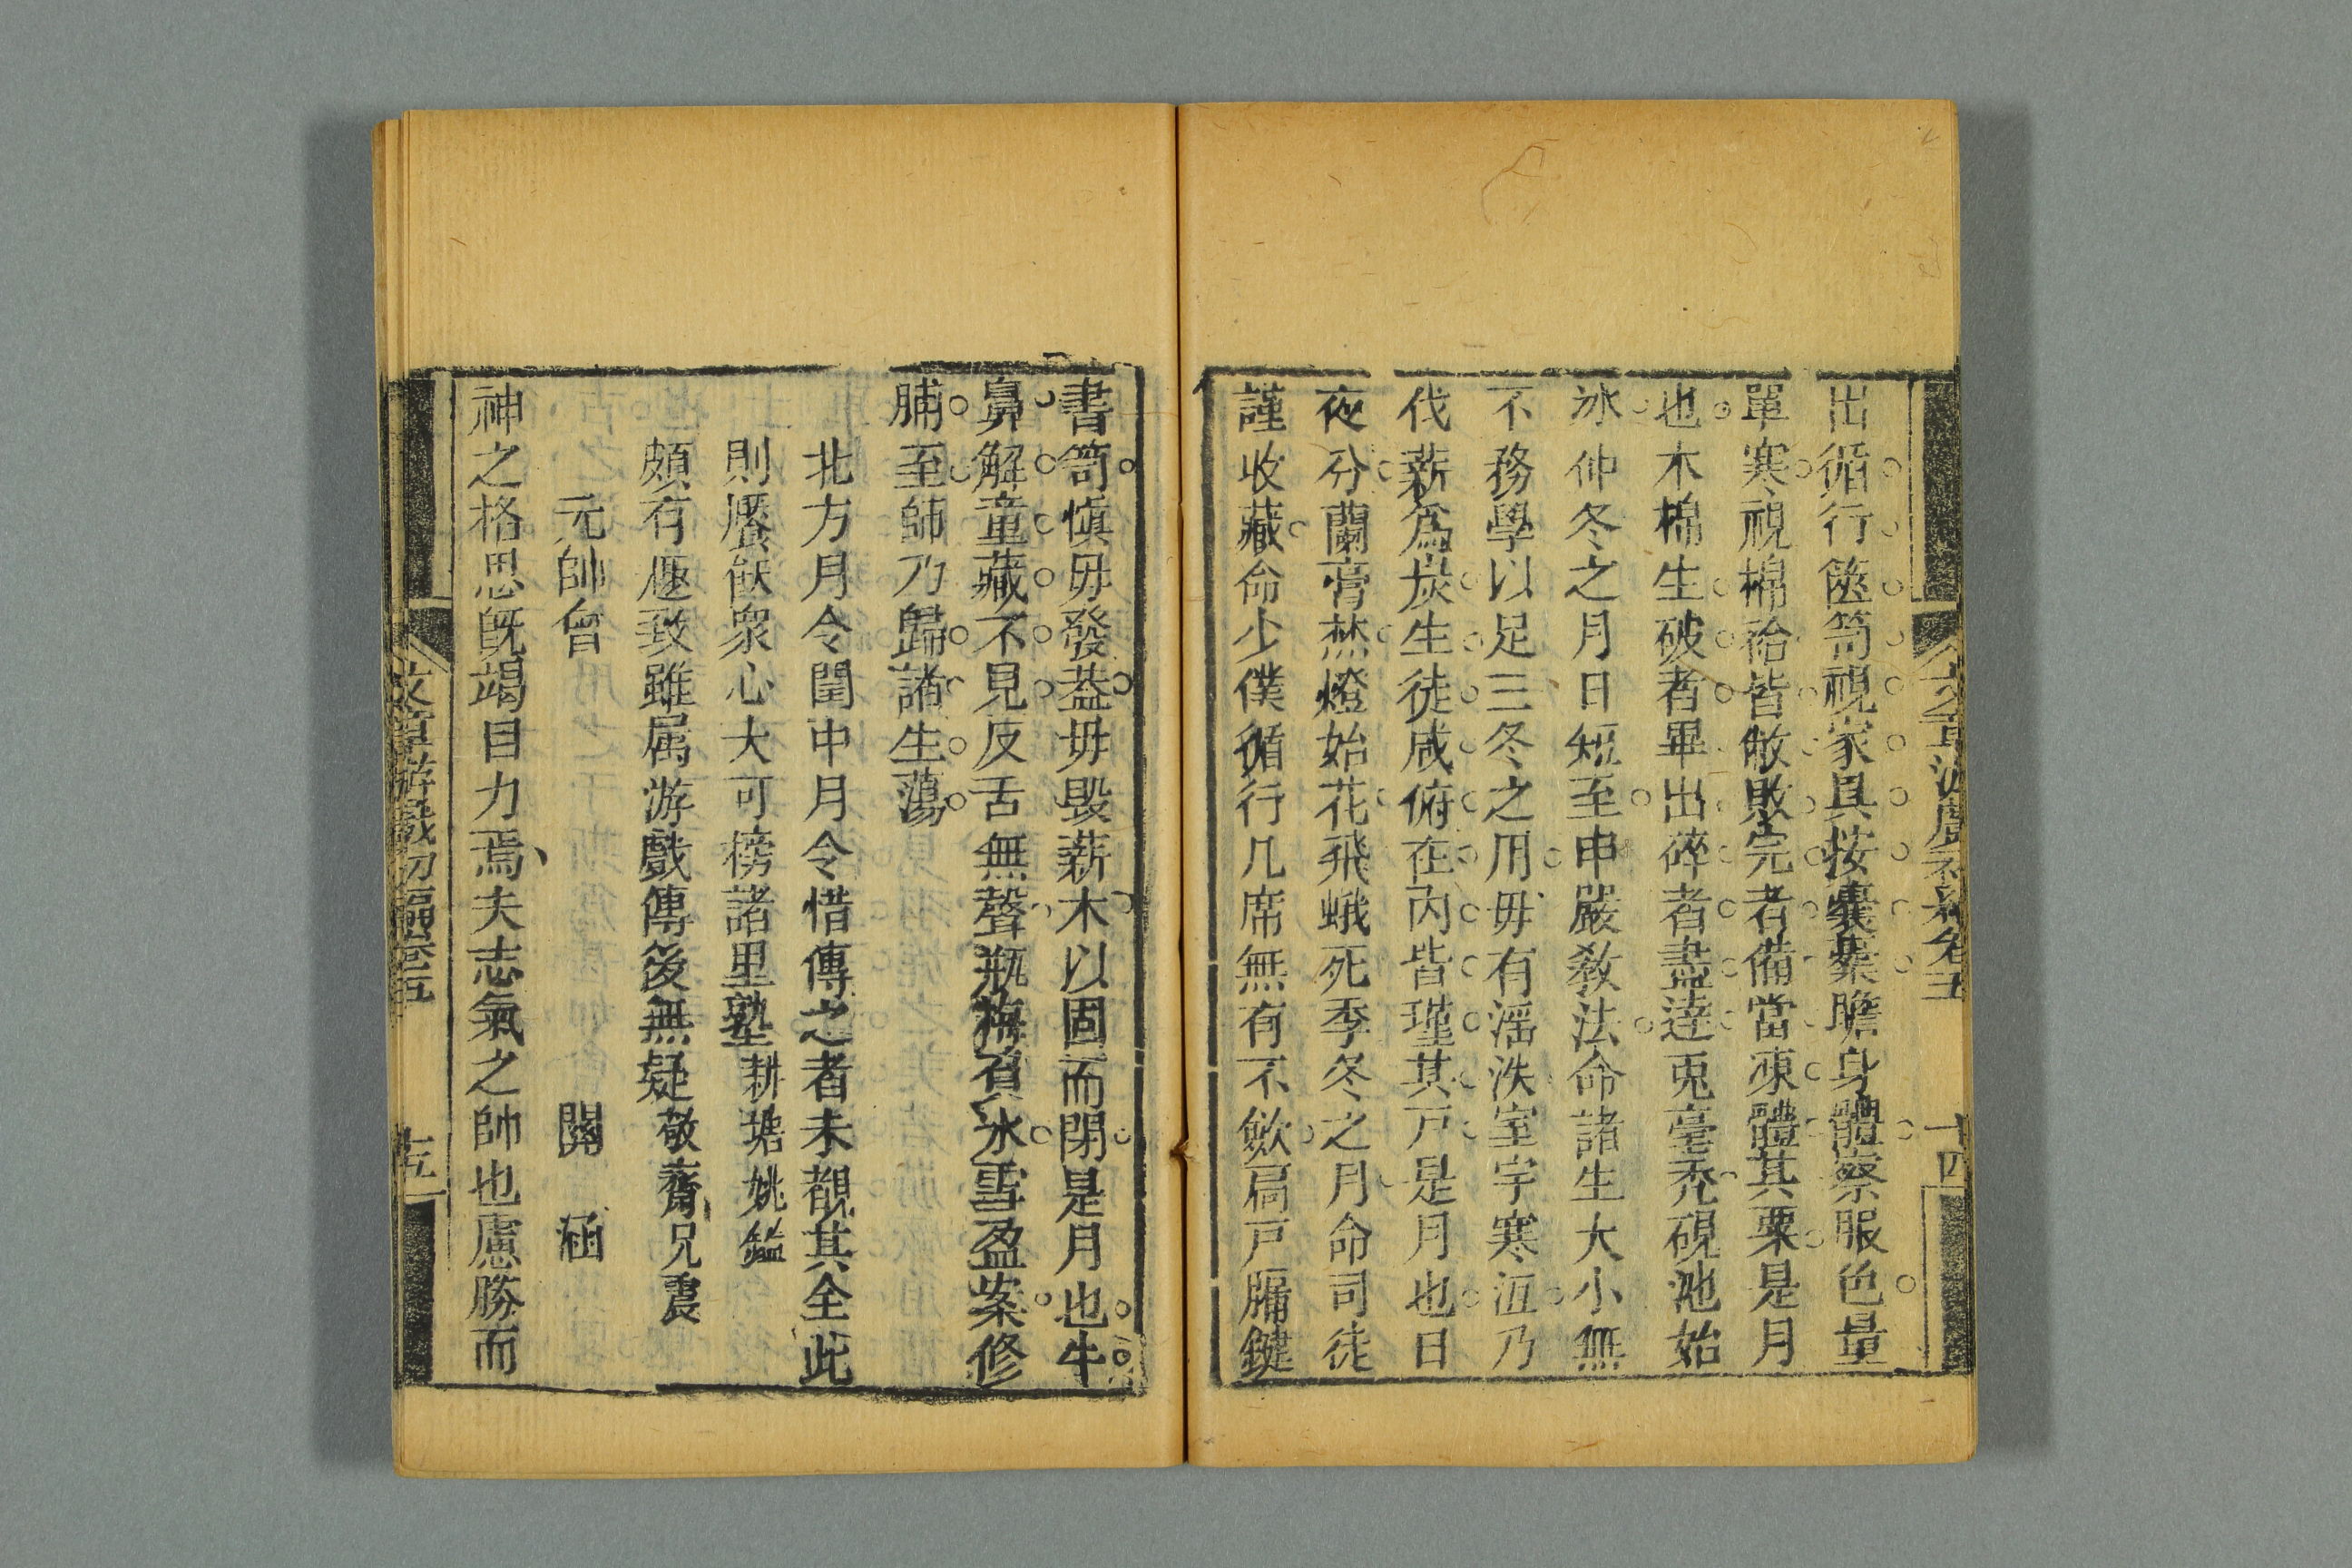 出循行篋笥視家具按囊橐瞻身體察服色量
單寒視棉袷皆敝敗完者備當凍體其粟是月
也木棉生破者畢出碎者盡達兎毫禿硯池始
冰仲冬之月日短至申嚴敎法命諸生大小無
不務學以足三冬之用毋有滛泆室宇寒沍乃
伐薪爲炭生徒咸俯在內皆墐其戸是月也日
夜分蘭膏焚燈始花飛蛾死季冬之月命司徒
謹收藏命少僕循行几席無有不歛扃戸牖鍵
書笥愼毋發葢毋毀薪木以固而閉是月也牛
鼻解童藏不見反舌無聲瓶梅負氷雪盈案修
脯至師乃歸諸生蕩
北方月令閨中月令惜傳之者未覩其全此
則饜飫衆心大可榜諸里塾 耕塘姚鎰
頗有趣致雖属游戲傳後無疑 敬齋兄震
元帥會 閱 涵
神之格思旣竭目力焉夫志氣之帥也慮勝而
文章游戲初編卷五 十四
文章游戲初編卷五 十五